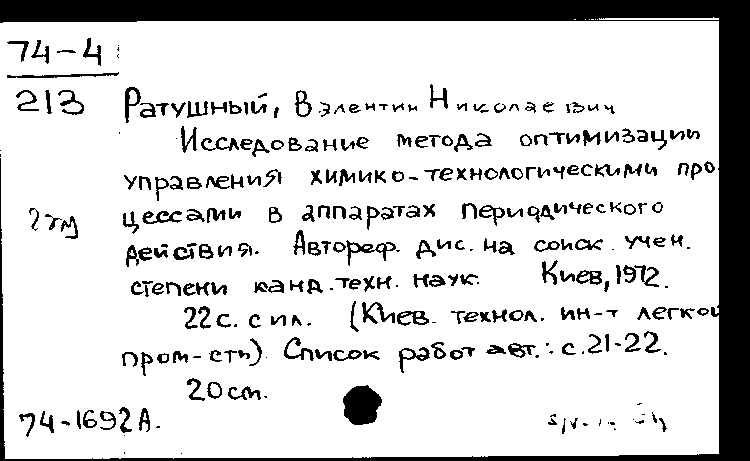 74-4
213 Ратушный, Валентин Николаевич
Исследование метода оптимизации
управления химико-технологическими про-
цессами в аппаратах периодического
действия. Автореф. дис. на соиск. учен.
степени канд. техн. наук. Киев, 1972.
22 с. с ил. (Киев. технол. ин-т легкой
пром-сти) Список работ авт.: с. 21-22.
20 см.
74-1692А.